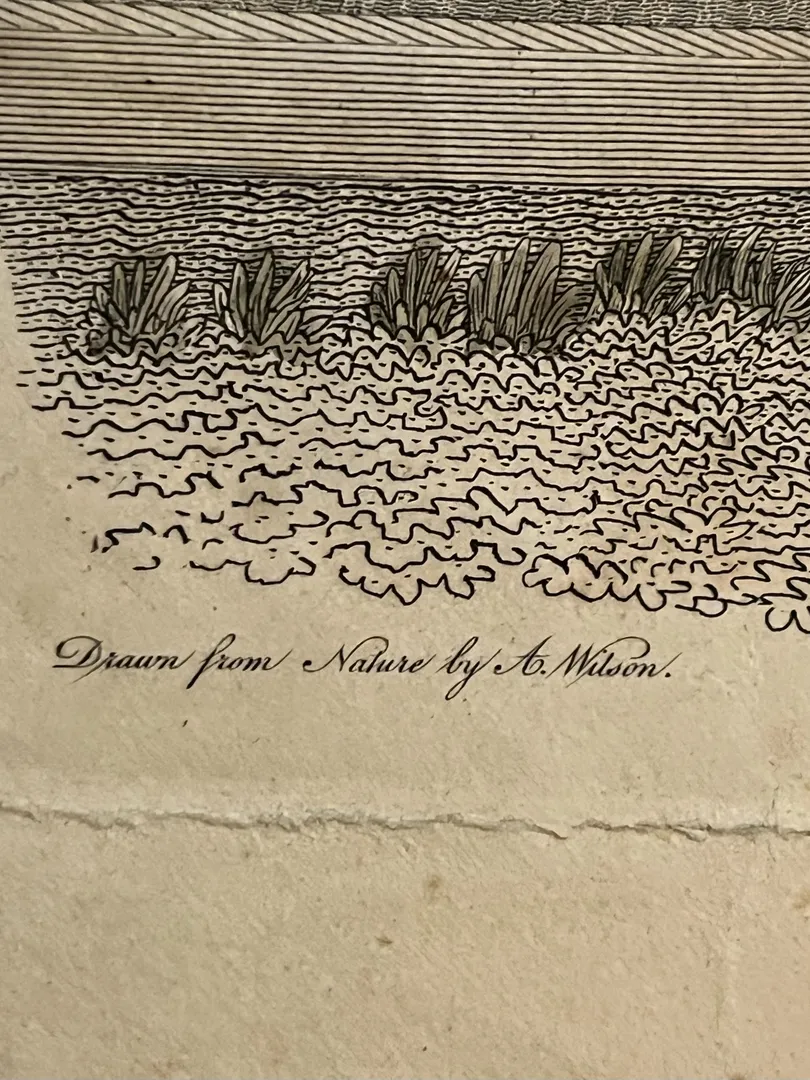 Drawn from Nature by A. Wilson.